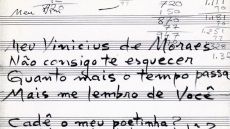 Meu
720
150
870
77
Meu Vinicius de Moraes
Não consigo te esquecer
Quanto mais o tempo passa
Mais me lembro de Você
Cadê o meu poetinha?